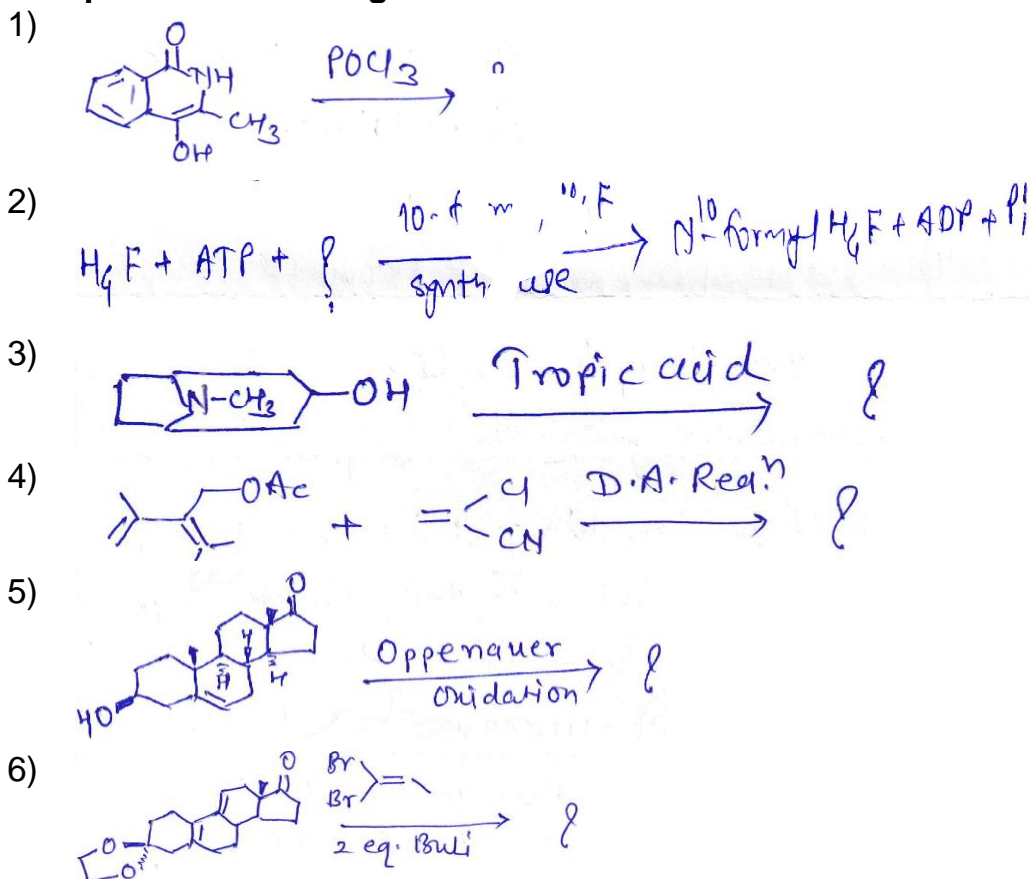 1)
O
NH
CH3
OH
POCl3
2)
H4F + ATP + ? synth ase N10-formyl H4F + ADP + Pi
3)
N-CH3 -OH Tropic acid ?
4)
OAc + = Cl CN D.A. Reaⁿ ?
5)
O
H
H
H
HO
Oppenauer
Oxidation
?
6)
O
O
O
Br
Br
2 eq. BuLi
?